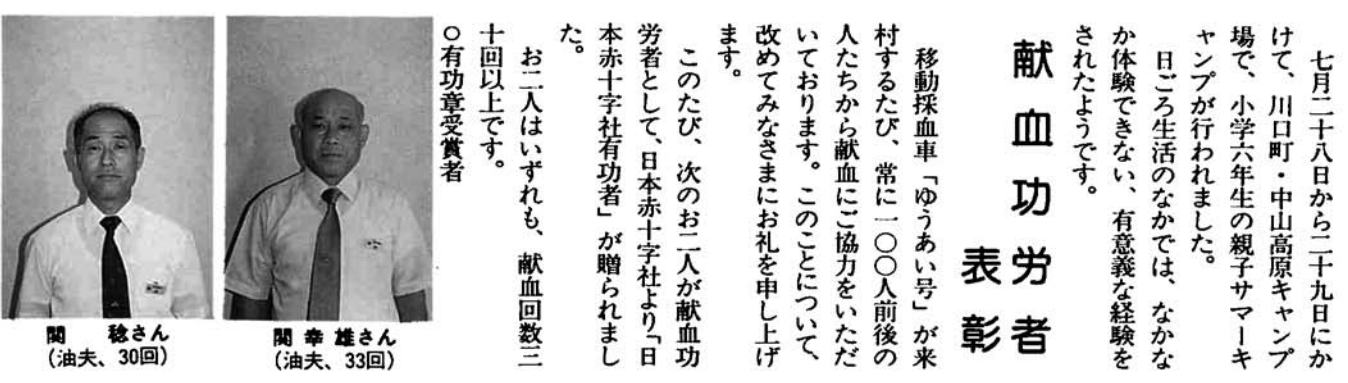 七月二十八日から二十九日にか
けて、川口町・中山高原キャンプ
場で、小学六年生の親子サマーキ
ャンプが行われました。
日ごろ生活のなかでは、なかな
か体験できない、有意義な経験を
されたようです。
献血功労者
表彰
移動採血車「ゆうあい号」が来
村するたび、常に一〇〇人前後の
人たちから献血にご協力をいただ
いております。このことについて、
改めてみなさまにお礼を申し上げ
ます。
このたび、次のお二人が献血功
労者として、日本赤十字社より「日
本赤十字社有功者」が贈られまし
た。
お二人はいずれも、献血回数三
十回以上です。
○有功章受賞者
関幸雄さん
(油夫、33回)
関稔さん
(油夫、30回)